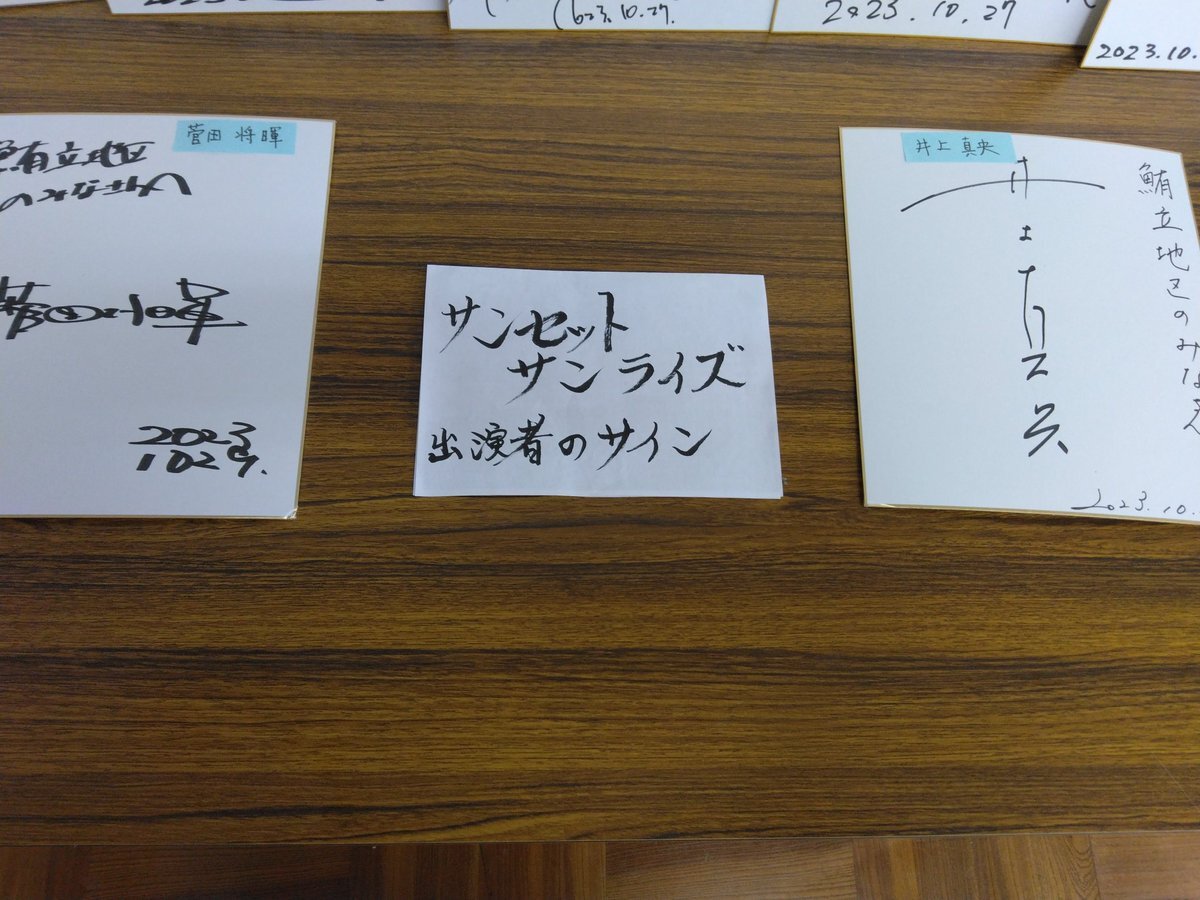 2023.10.27.
2023.10.27
2023.10.
菅田 将暉
鮪立地区
のみなさんへ
2023
1027.
サンセット
サンライズ
出演者のサイン
井上 真央
鮪立地区のみなさんへ
井上真央
2023.10.